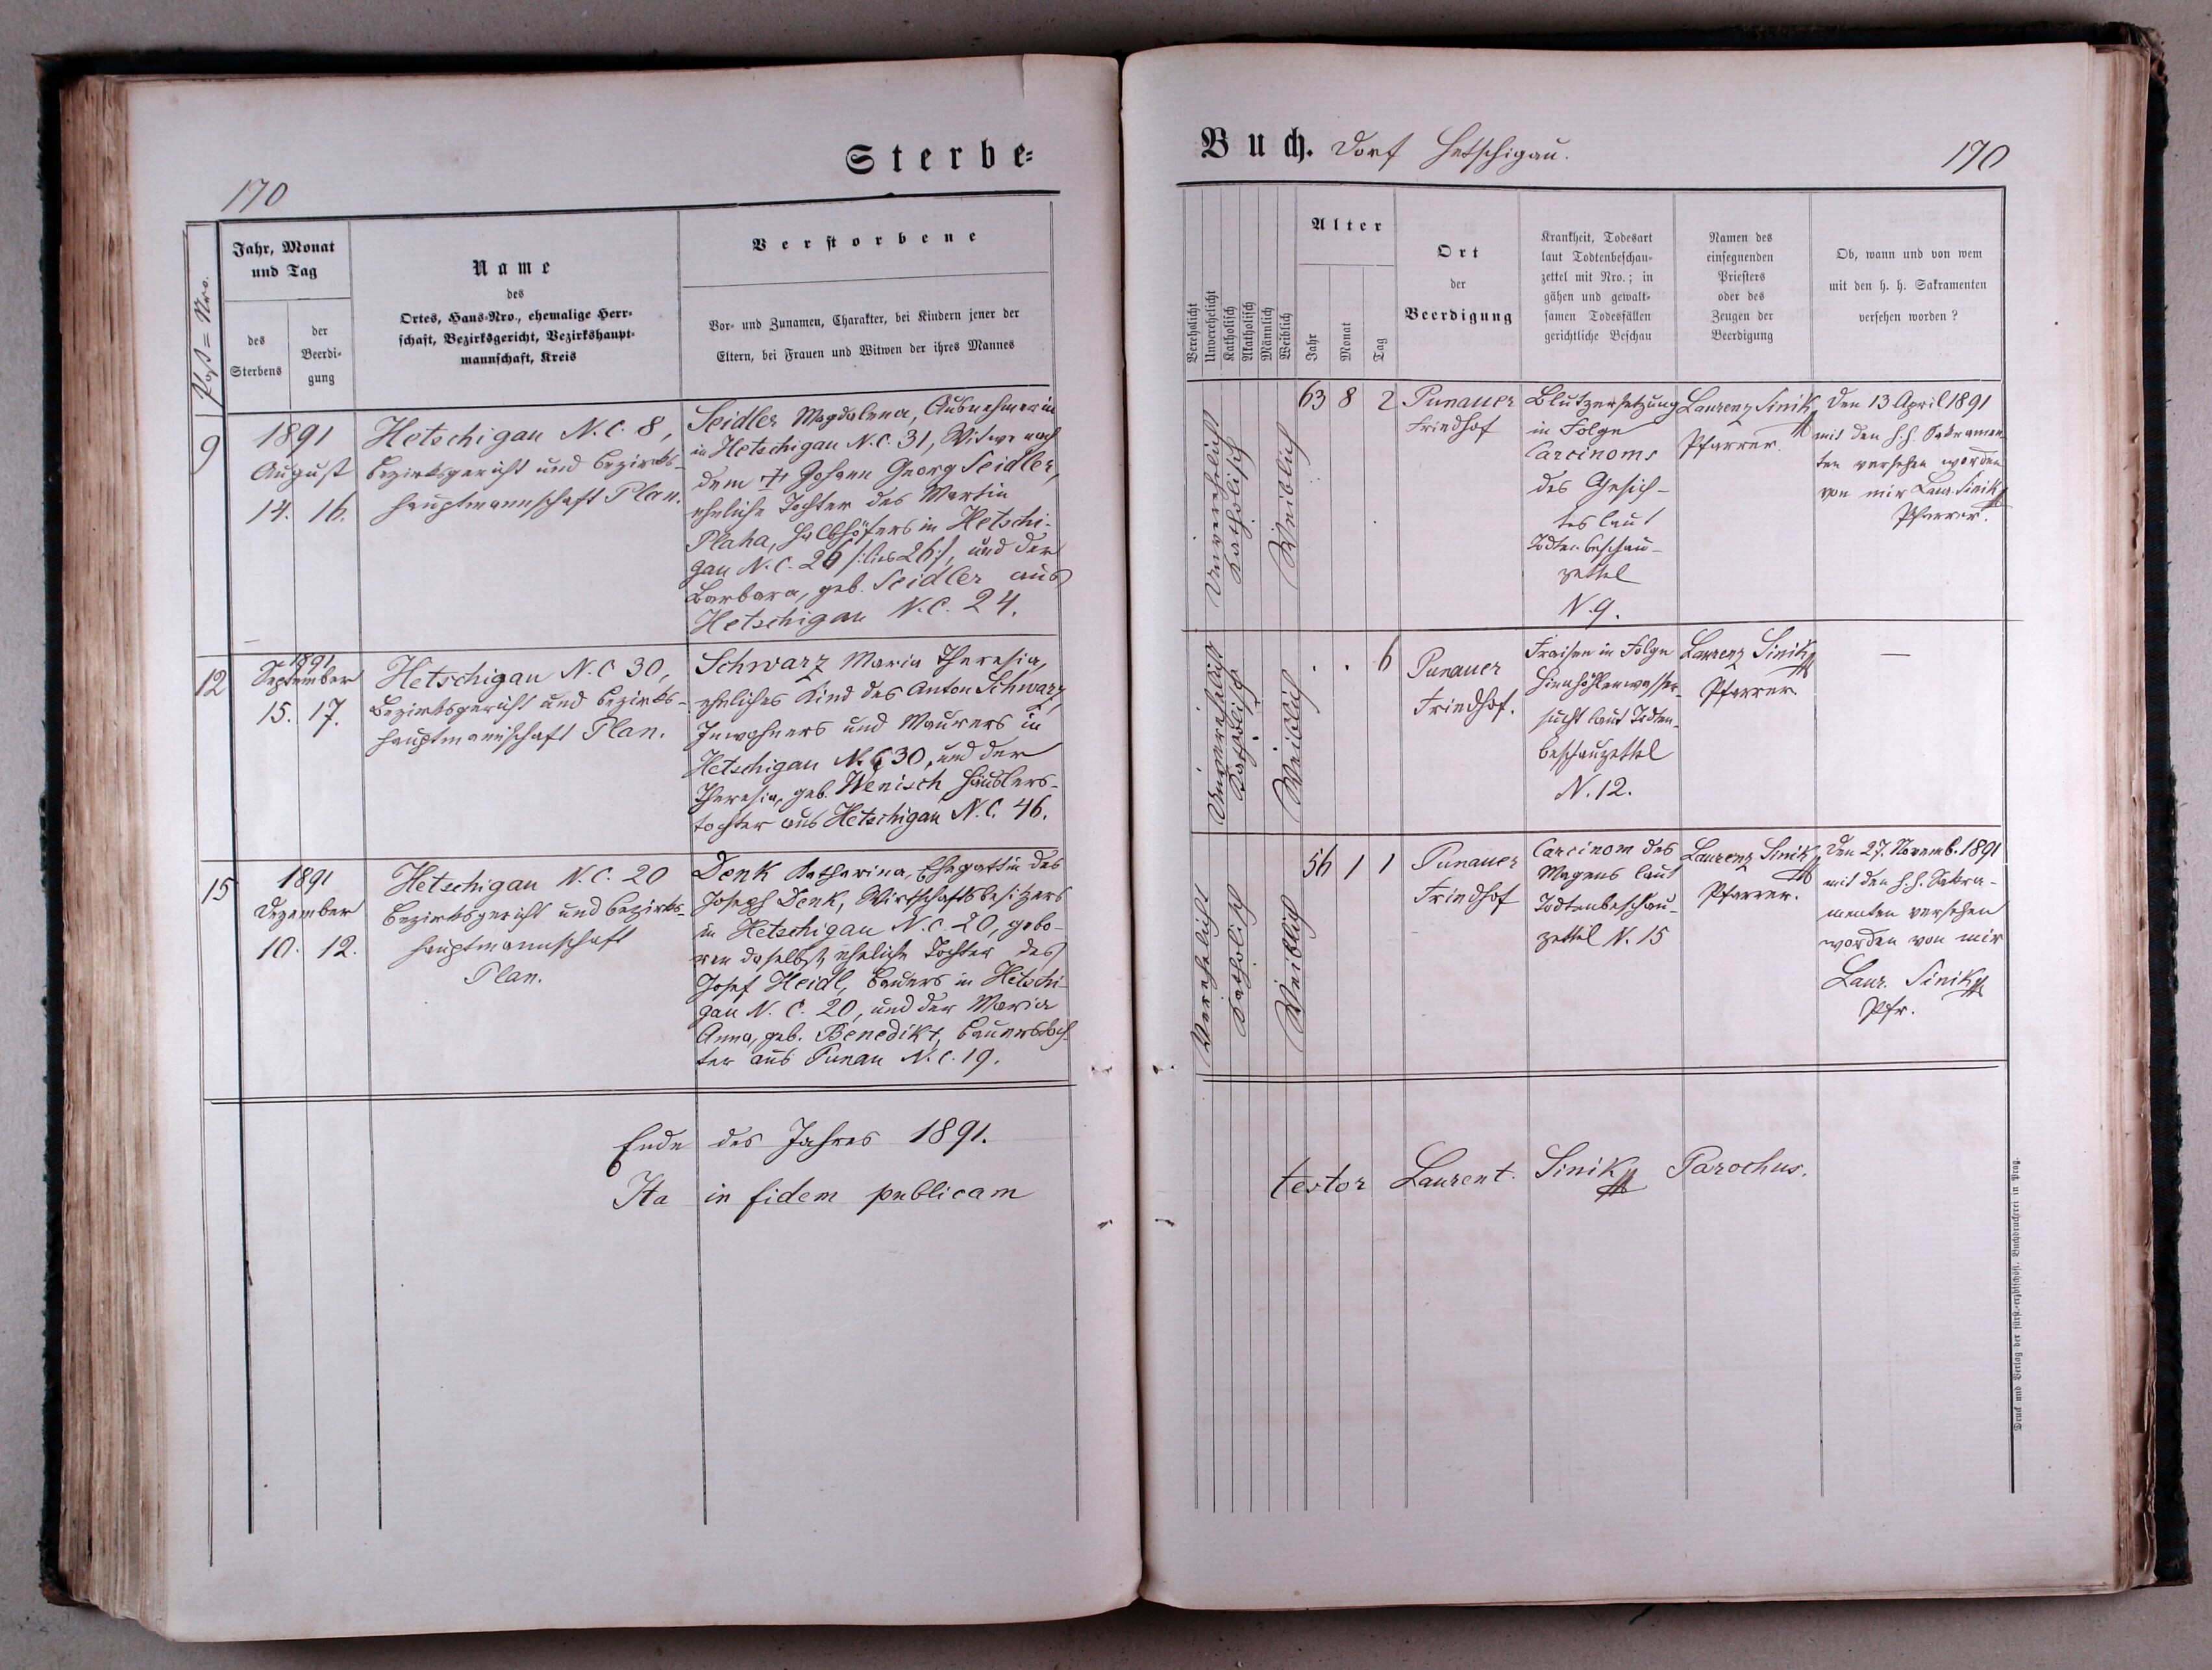 Sterbe-
170
Post-Nro.
Jahr, Monat
und Tag
des
Sterbens
der
Beerdi-
gung
Name
des
Ortes, Haus-Nro., ehemalige Herr-
schaft, Bezirksgericht, Bezirkshaupt-
mannschaft, Kreis
Verstorbene
Vor- und Zunamen, Charakter, bei Kindern jener der
Eltern, bei Frauen und Witwen der ihres Mannes
9
1891
August
14. 16.
Hetschigau N. C. 8,
Bezirksgericht und Bezirks-
hauptmannschaft Plan.
Seidler Magdalena, Ausnehmerin
in Hetschigau N. C. 31, Witwe nach
dem † Johann Georg Seidler,
eheliche Tochter des Martin
Plaha, Halbhöfers in Hetschi-
gau N. C. 26 /: lies 26 :/, und der
Barbara, geb. Seidler aus
Hetschigau N. C. 24.
12
1891
September
15. 17.
Hetschigau N. C 30,
Bezirksgericht und Bezirks-
hauptmannschaft Plan.
Schwarz Maria Theresia,
eheliches Kind des Anton Schwarz,
Inwohners und Maurers in
Hetschigau N. C 30, und der
Theresia, geb. Wenisch Häuslers-
tochter aus Hetschigau N. C. 46.
15
1891
Dezember
10. 12.
Hetschigau N. C. 20
Bezirksgericht und Bezirks-
hauptmannschaft
Plan.
Denk Katharina, Ehegattin des
Joseph Denk, Wirtschaftsbesitzers
in Hetschigau N. C. 20, gebo-
ren daselbst, eheliche Tochter des
Josef Heidl, Bauers in Hetschi-
gau N. C. 20, und der Maria
Anna, geb. Benedikt, Bauerstoch-
ter aus Punau N. C. 19.
Ende des Jahres 1891.
Ita in fidem publicam
Buch. Dorf Hetschigau.
170
Verehelicht
Unverehelicht
Katholisch
Akatholisch
Männlich
Weiblich
Alter
Jahr
Monat
Tag
Ort
der
Beerdigung
Krankheit, Todesart
laut Todtenbeschau-
zettel mit Nro.; in
gähen und gewalt-
samen Todesfällen
gerichtliche Beschau
Namen des
einsegnenden
Priesters
oder des
Zeugen der
Beerdigung
Ob, wann und von wem
mit den h. h. Sakramenten
versehen worden?
Unverehelicht
Katholisch
Weiblich
63 8 2
Punauer
Friedhof
Blutzersetzung
in Folge
Carcinoms
des Gesich-
tes laut
Todtenbeschau-
zettel
N. 9.
Laurenz Sinik
Pfarrer.
Den 13 April 1891
mit den h. h. Sakramen-
ten versehen worden
von mir Laur. Sinik
Pfarrer.
Unverehelicht
Katholisch
Weiblich
. . 6
Punauer
Friedhof.
Fraisen in Folge
Hirnhöhlenwasser-
sucht laut Todten-
beschauzettel
N. 12.
Laurenz Sinik
Pfarrer
—
Verehelicht
Katholisch
Weiblich
56 1 1
Punauer
Friedhof
Carcinom des
Magens laut
Todtenbeschau-
zettel N. 15
Laurenz Sinik
Pfarrer.
Den 27. Novemb. 1891
mit den h. h. Sakra-
menten versehen
worden von mir
Laur. Sinik
Pfr.
testor Laurent. Sinik Parochus.
Druck und Verlag der fürst-erzbischöfl. Buchdruckerei in Prag.